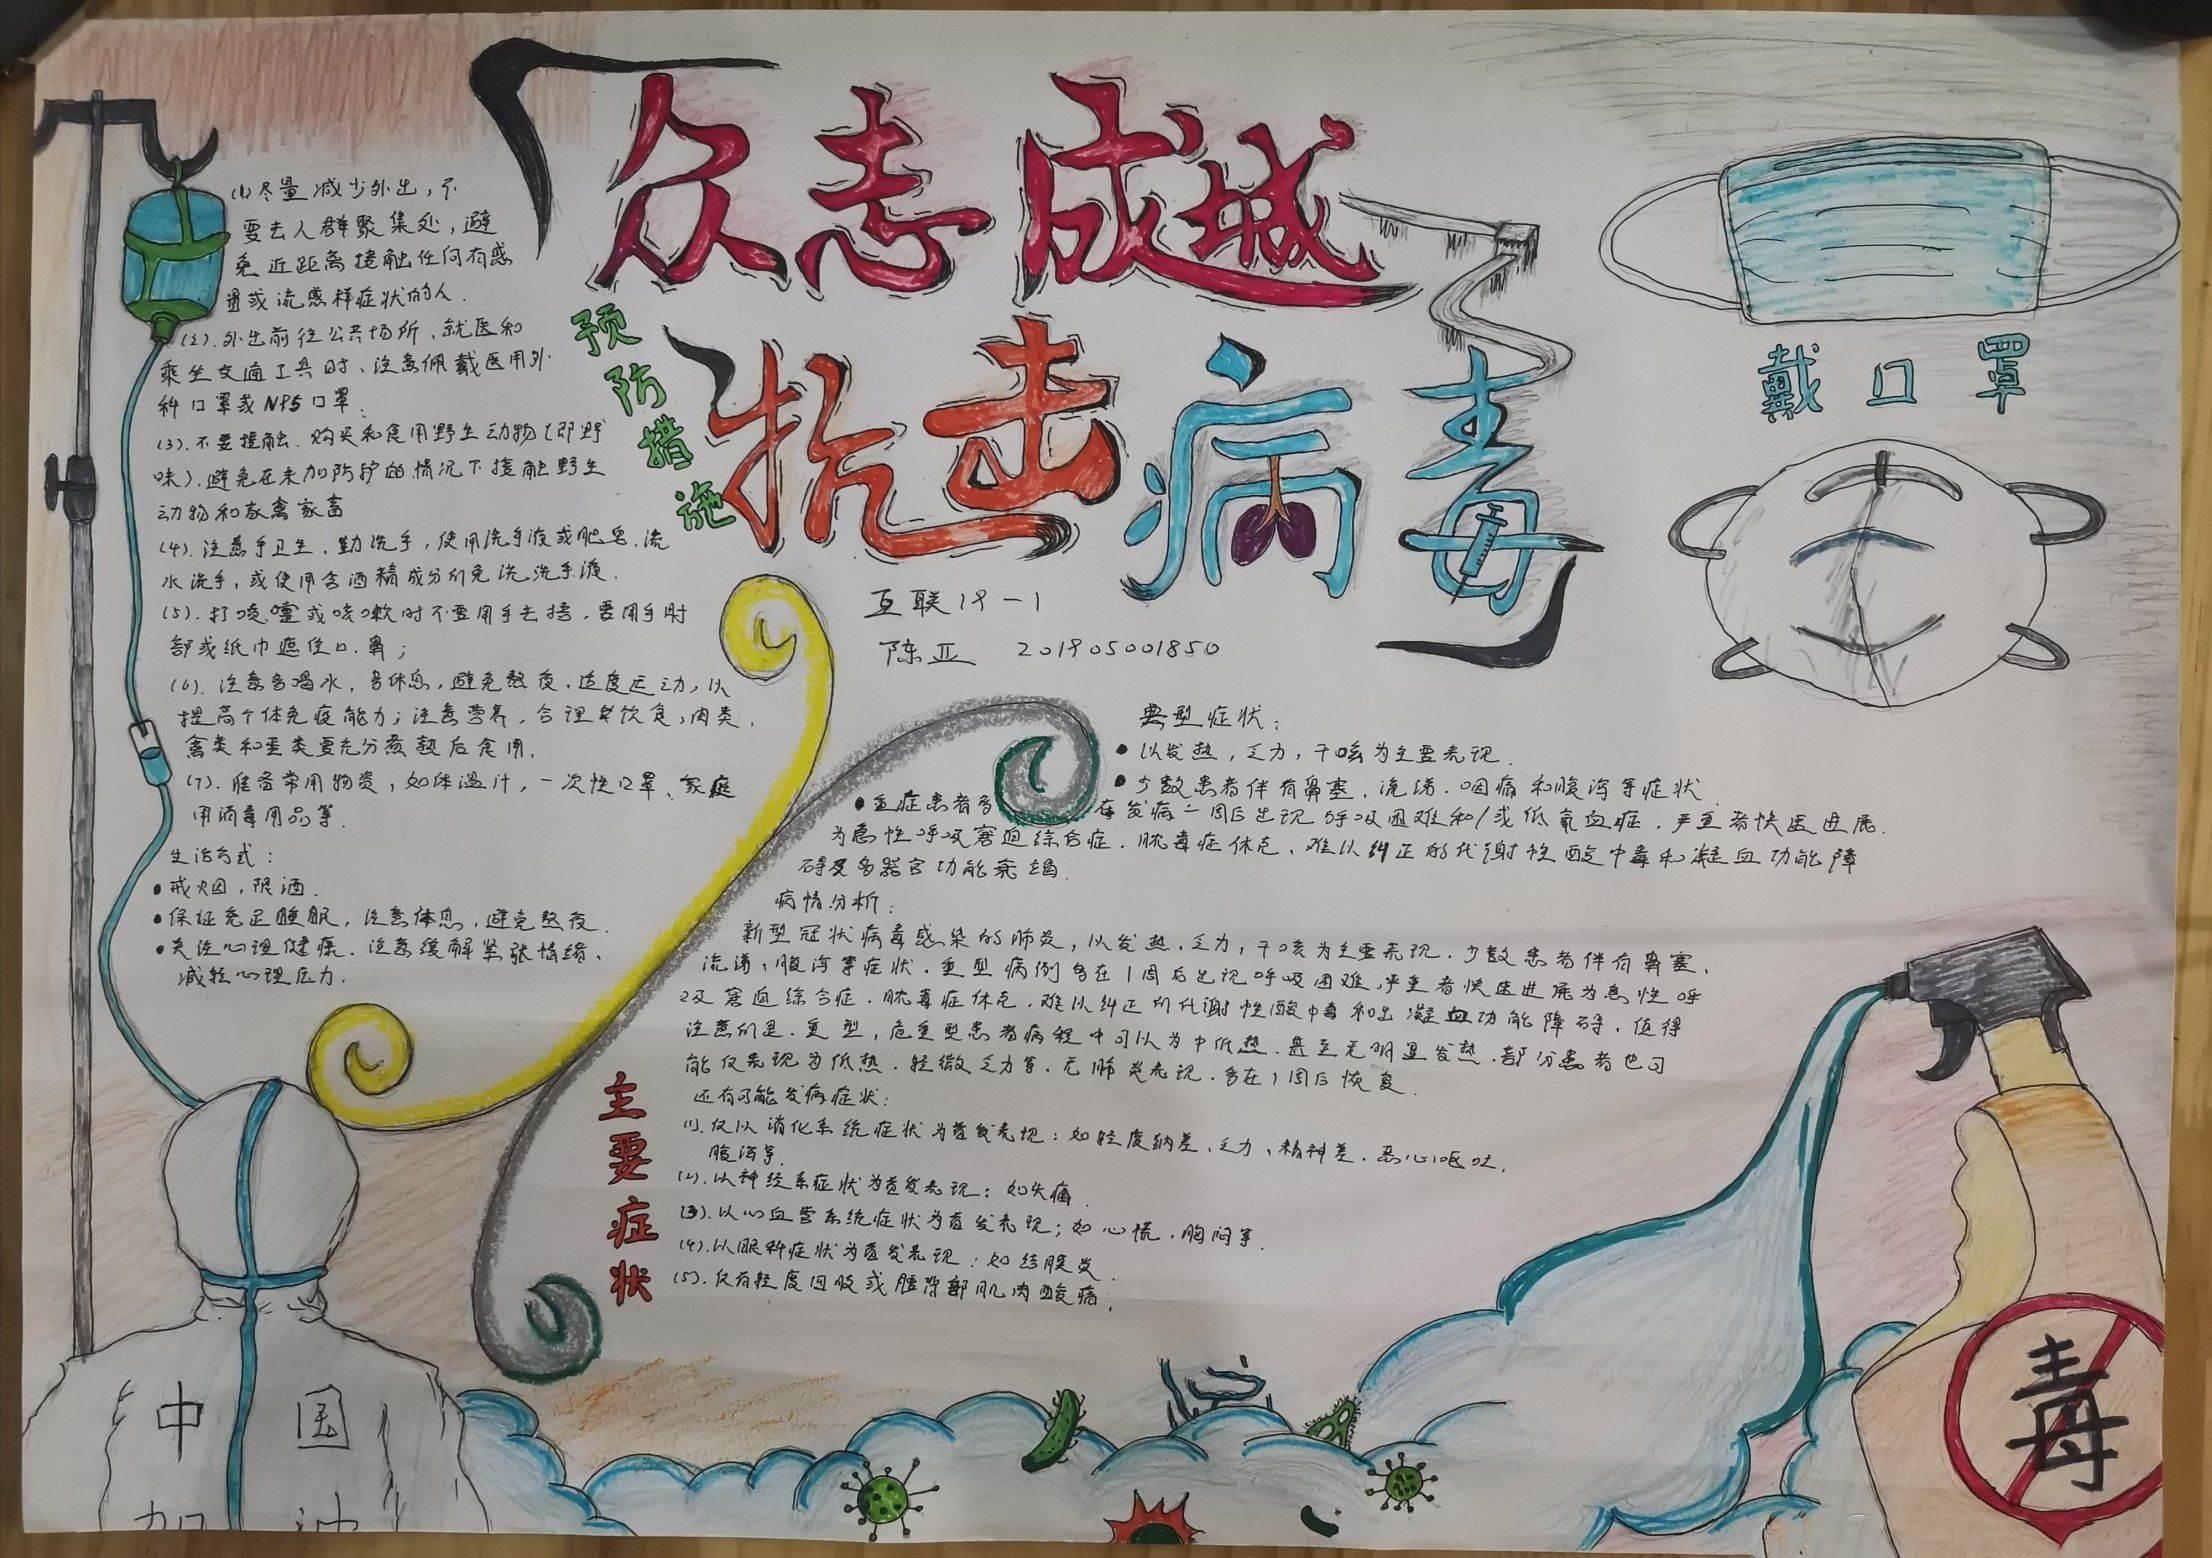 众志成城
抗击病毒
预防措施
互联19-1
陈亚 201905001850
(1)尽量减少外出，不
要去人群聚集处，避
免近距离接触任何有感
冒或流感样症状的人.
(2).外出前往公共场所、就医和
乘坐交通工具时、注意佩戴医用外
科口罩或N95口罩；
(3).不要接触、购买和食用野生动物(即野
味).避免在未加防护的情况下接触野生
动物和家禽家畜
(4).注意手卫生,勤洗手,使用洗手液或肥皂、流
水洗手,或使用含酒精成分的免洗洗手液.
(5).打喷嚏或咳嗽时不要用手去捂,要用手肘
部或纸巾遮住口、鼻;
(6).注意多喝水,多休息,避免熬夜,适度运动,以
提高个体免疫能力;注意营养,合理饮食,肉类、
禽类和蛋类要充分煮熟后食用.
(7).准备常用物资,如体温计,一次性口罩、家庭
用消毒用品等.
生活方式:
•戒烟,限酒.
•保证充足睡眠,注意休息,避免熬夜.
•关注心理健康.注意缓解紧张情绪、
减轻心理压力.
戴口罩
典型症状:
•以发热,乏力,干咳为主要表现.
•少数患者伴有鼻塞,流涕、咽痛和腹泻等症状.
•重症患者多在发病一周后出现呼吸困难和/或低氧血症.严重者快速进展
为急性呼吸窘迫综合症.脓毒症休克、难以纠正的代谢性酸中毒和凝血功能障
碍及多器官功能衰竭.
病情分析:
新型冠状病毒感染的肺炎,以发热.乏力,干咳为主要表现.少数患者伴有鼻塞、
流涕、腹泻等症状.重型病例多在1周后出现呼吸困难,严重者快速进展为急性呼
吸窘迫综合症.脓毒症休克.难以纠正的代谢性酸中毒和出凝血功能障碍.值得
注意的是.重型,危重型患者病程中可以为中低热.甚至无明显发热.部分患者也可
能仅表现为低热.轻微乏力等.无肺炎表现.多在1周后恢复.
还有可能发病症状:
(1).仅以消化系统症状为首发表现:如轻度纳差、乏力、精神差.恶心呕吐.
腹泻等.
(2).以神经系症状为首发表现:如头痛.
(3).以心血管系统症状为首发表现;如心慌.胸闷等.
(4).以眼科症状为首发表现:如结膜炎.
(5).仅有轻度四肢或腰背部肌肉酸痛.
主要症状
中国
毒